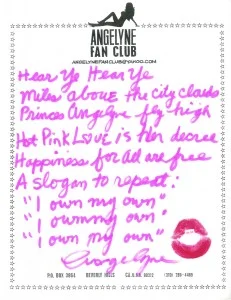 ANGELYNE
FAN CLUB
ANGELYNEFANCLUB@YAHOO.COM
Hear Ye Hear Ye
Miles above the city clouds
Princes Angelyne fly high
Hot Pink Love is Her decree
Happiness for All are free
A slogan to repeat:
"I own my own"
"I own my own"
"I own my own"
Angelyne
P.O. BOX 3864 BEVERLY HILLS CA.